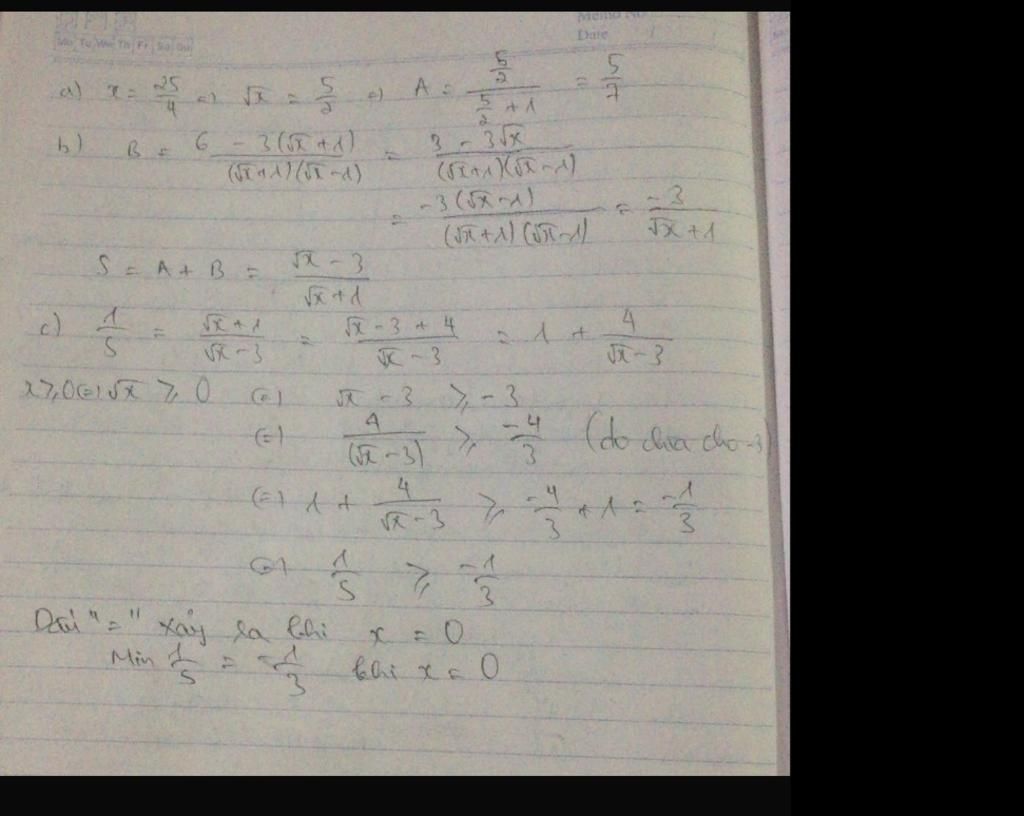 Memo No.
Mo Tu We Th Fr Sa Su
Date / /
a) x = 25/4 => √x = 5/2 => A = (5/2)/(5/2 + 1) = 5/7
b) B = (6 - 3(√x + 1))/((√x+1)(√x-1)) = (3 - 3√x)/((√x+1)(√x-1))
= (-3(√x-1))/((√x+1)(√x-1)) = -3/(√x+1)
S = A + B = (√x - 3)/(√x + 1)
c) 1/S = (√x+1)/(√x-3) = (√x - 3 + 4)/(√x - 3) = 1 + 4/(√x-3)
x ⩾ 0 (=) √x ⩾ 0 (=) √x - 3 ⩾ -3
(=) 4/(√x-3) ⩾ -4/3 (do chia cho -3)
(=) 1 + 4/(√x-3) ⩾ -4/3 + 1 = -1/3
(=) 1/S ⩾ -1/3
Dấu "=" xảy ra khi x = 0
Min 1/S = -1/3 khi x = 0